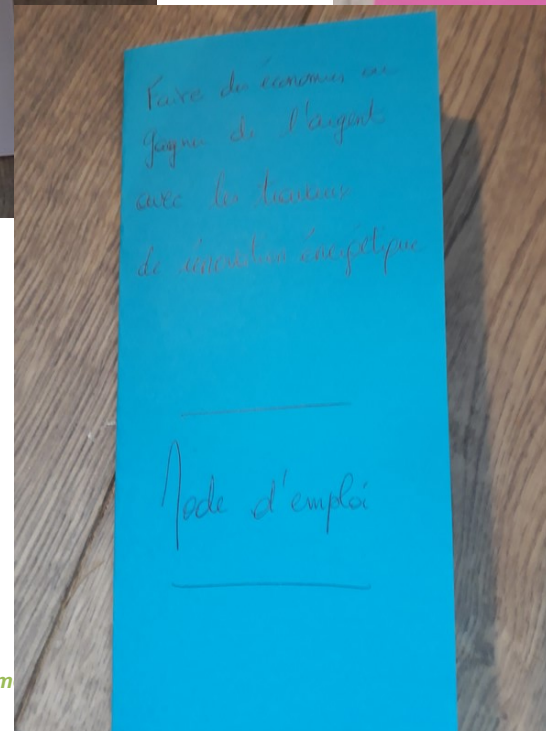 Faire des économies ou
gagner de l'argent
avec les travaux
de rénovation énergétique
Mode d'emploi
m